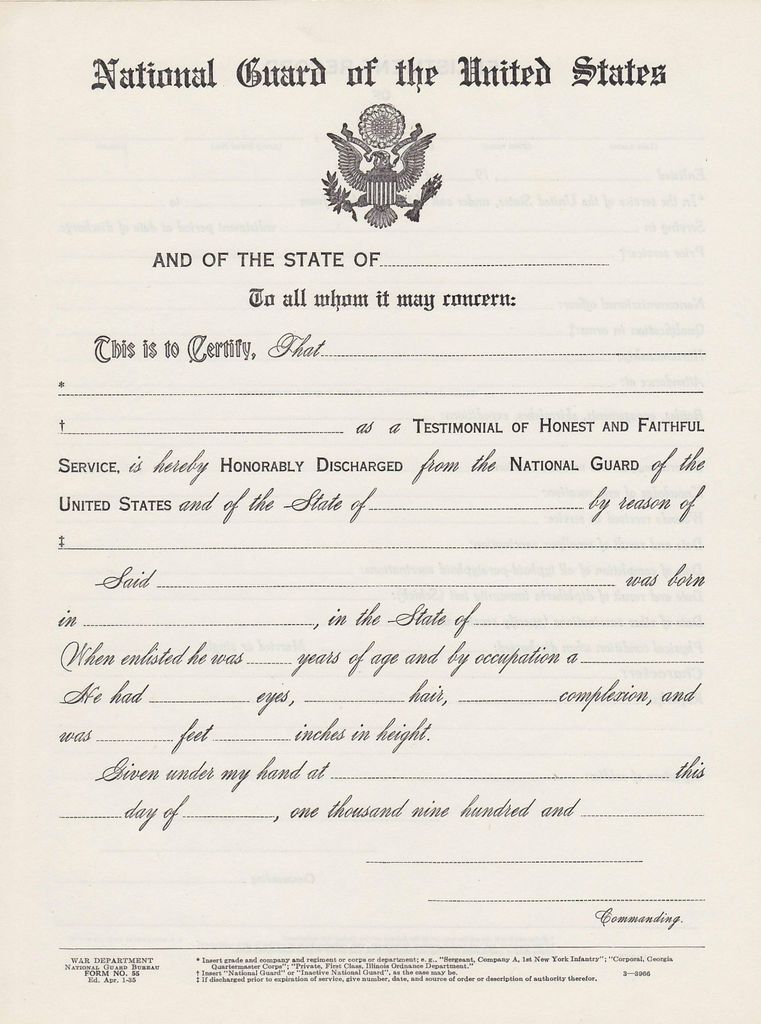 National Guard of the United States
AND OF THE STATE OF
To all whom it may concern:
This is to Certify, That
*
† as a TESTIMONIAL OF HONEST AND FAITHFUL
SERVICE, is hereby HONORABLY DISCHARGED from the NATIONAL GUARD of the
UNITED STATES and of the State of by reason of
‡
Said was born
in , in the State of
When enlisted he was years of age and by occupation a
He had eyes, hair, complexion, and
was feet inches in height.
Given under my hand at this
day of , one thousand nine hundred and
Commanding.
WAR DEPARTMENT
NATIONAL GUARD BUREAU
FORM NO. 55
Ed. Apr. 1-35
* Insert grade and company and regiment or corps or department; e. g., "Sergeant, Company A, 1st New York Infantry"; "Corporal, Georgia
Quartermaster Corps"; "Private, First Class, Illinois Ordnance Department."
† Insert "National Guard" or "Inactive National Guard", as the case may be.
‡ If discharged prior to expiration of service, give number, date, and source of order or description of authority therefor.
3—3966